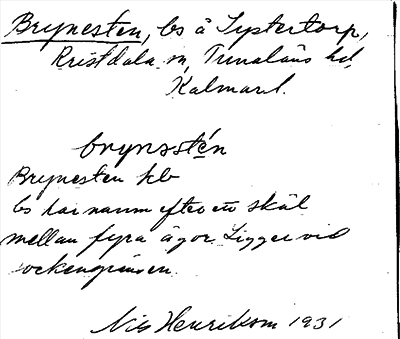 Brynesten, bs å Systertorp,
Kristdala sn, Tunaläns hd,
Kalmar l.
brynəstén
Brynesten kb
bs har namn efter en skäl
mellan fyra ägor. Ligger vid
sockengränsen.
Nils Henrikson 1931